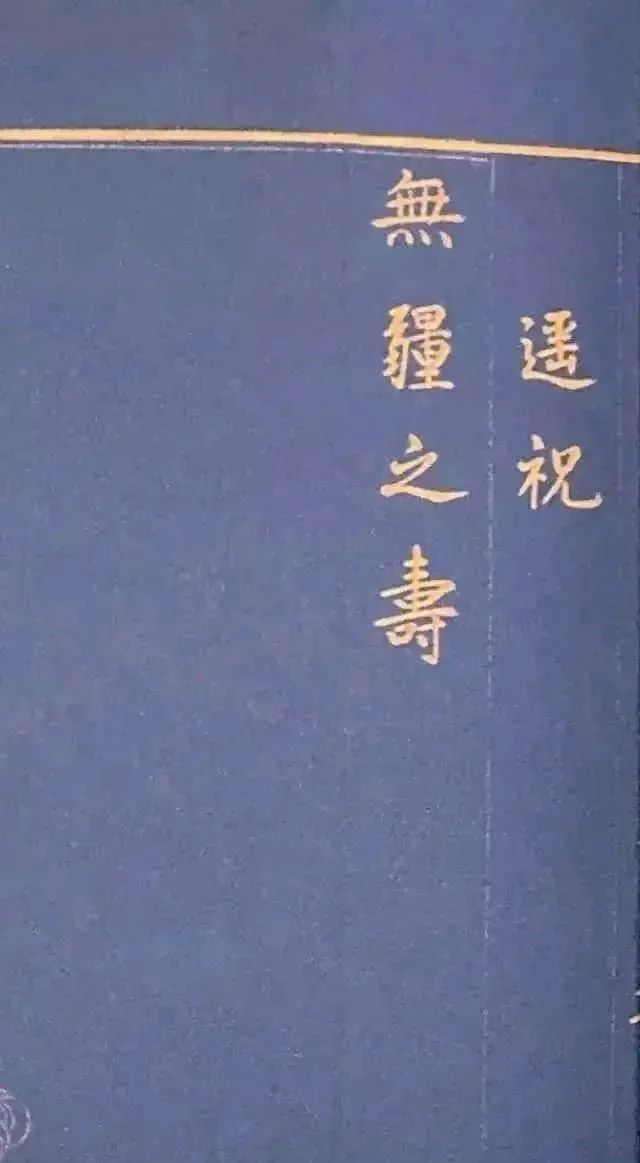 遥祝
無疆之壽